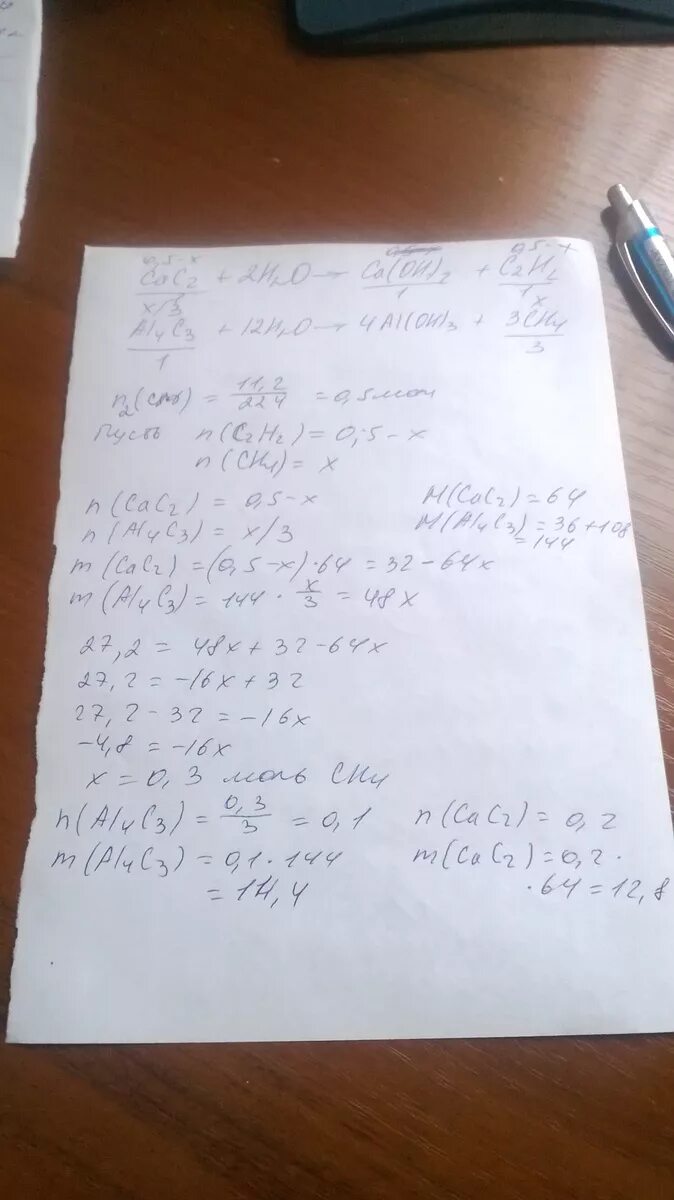 0,5-x 0,5-x
CaC2 + 2H2O → Ca(OH)2 + C2H2
1 1
x/3 x
Al4C3 + 12H2O → 4Al(OH)3 + 3CH4
1 3
n2( ) = 11,2/22,4 = 0,5 моль
Пусть n(C2H2) = 0,5-x
n(CH4) = x
n(CaC2) = 0,5-x M(CaC2) = 64
n(Al4C3) = x/3 M(Al4C3) = 36+108
= 144
m(CaC2) = (0,5-x)·64 = 32-64x
m(Al4C3) = 144 · x/3 = 48x
27,2 = 48x + 32-64x
27,2 = -16x + 32
27,2 - 32 = -16x
-4,8 = -16x
x = 0,3 моль CH4
n(Al4C3) = 0,3/3 = 0,1 n(CaC2) = 0,2
m(Al4C3) = 0,1·144 m(CaC2) = 0,2·
= 14,4 ·64 = 12,8